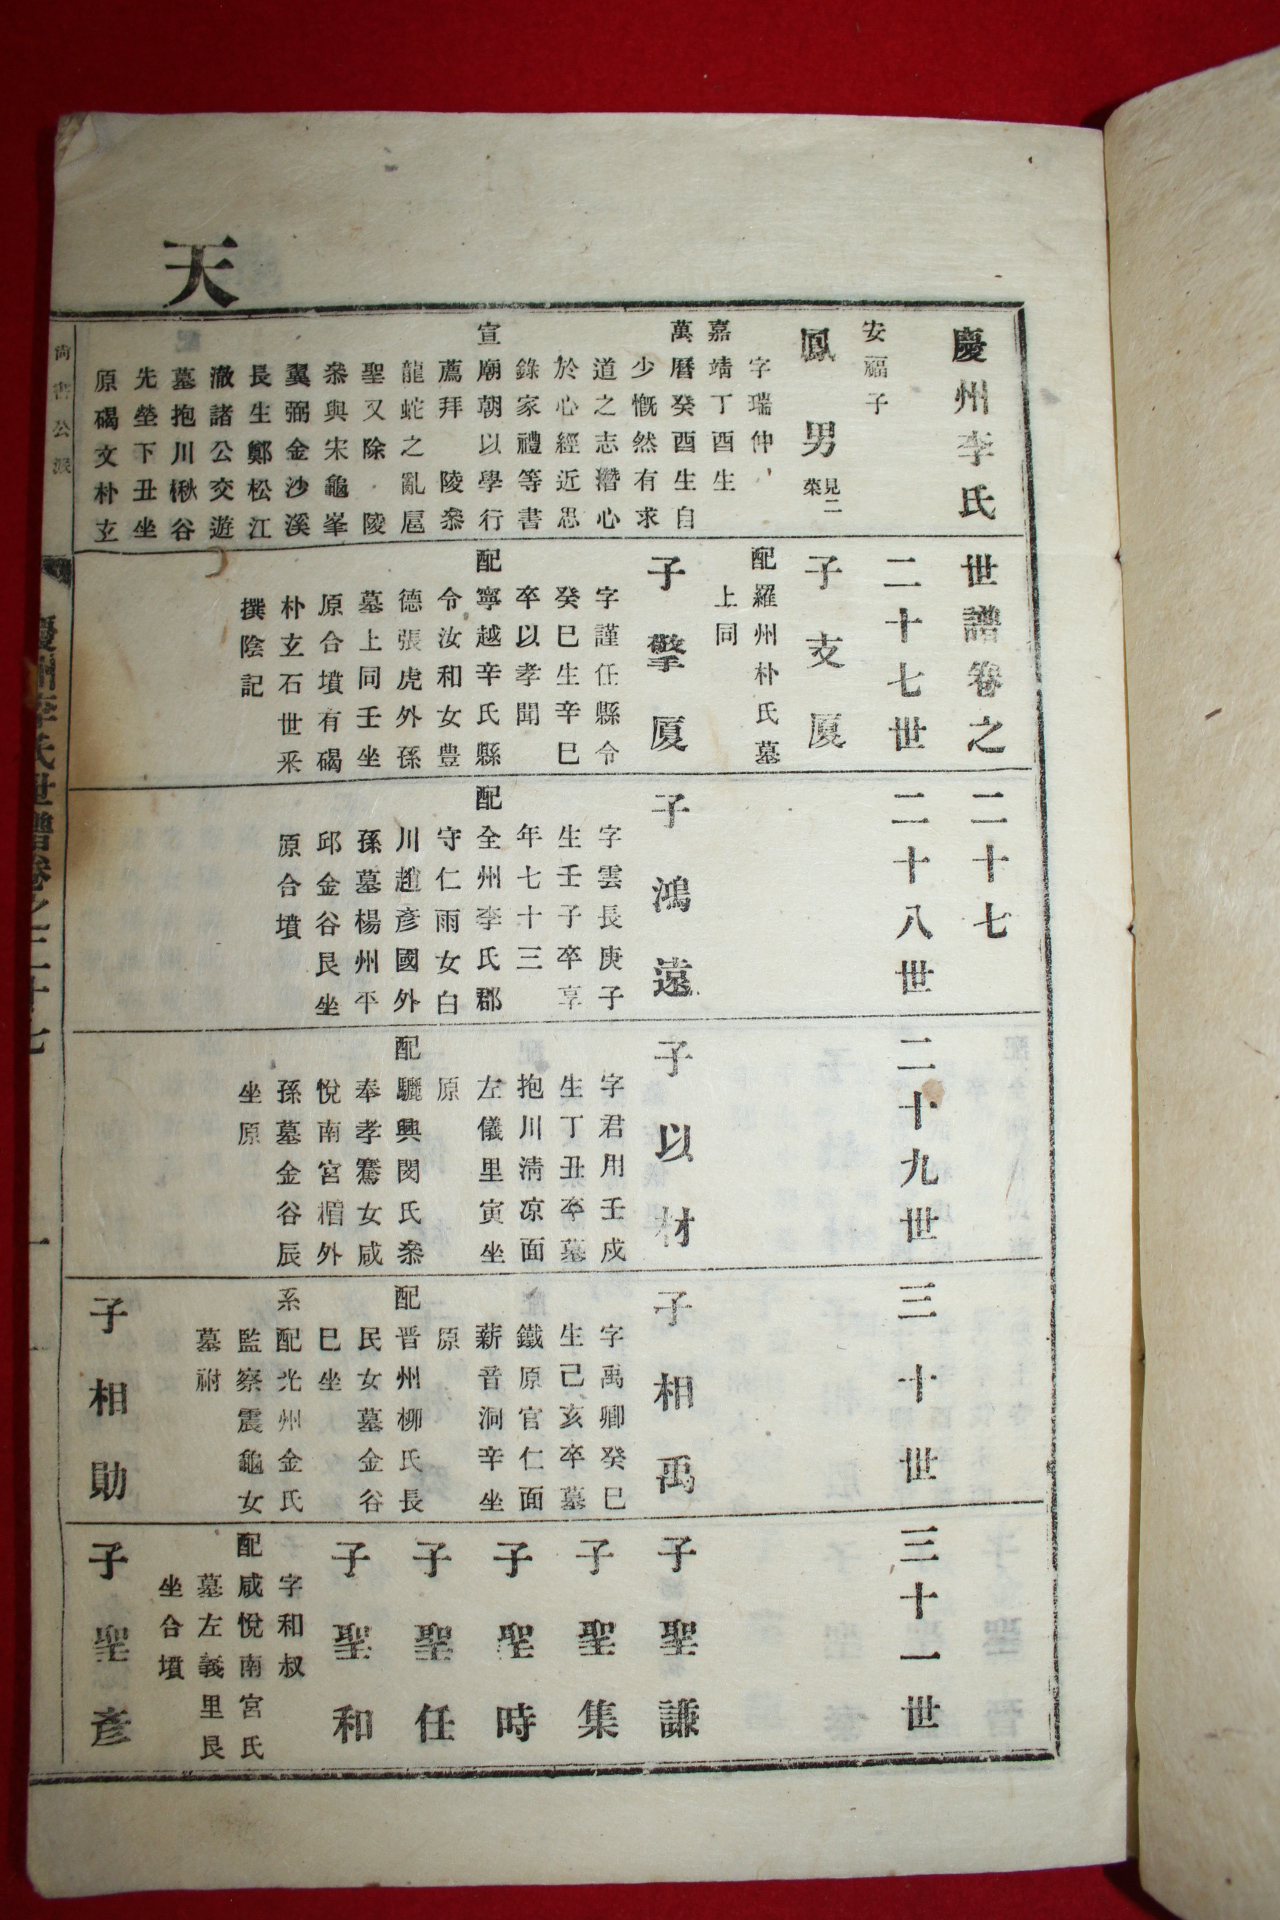 天
慶州李氏世譜卷之二十七
安福子
二十七世
二十八世
二十九世
三十世
三十一世
鳳男
見二
榮
字瑞仲
嘉靖丁酉生
萬曆癸酉生自
少慨然有求
道之志潛心
於心經近思
錄家禮等書
宣廟朝以學行
薦拜 陵叅
龍蛇之亂扈
聖又除 陵
叅與宋龜峯
翼弼金沙溪
長生鄭松江
澈諸公交遊
墓抱川楸谷
先塋下丑坐
原碣文朴玄
子支厦
配羅州朴氏墓
上同
子擎厦
字謹任縣令
癸巳生辛巳
卒以孝聞
配寧越辛氏縣
令汝和女豊
德張虎外孫
墓上同壬坐
原合墳有碣
朴玄石世采
撰陰記
子鴻遠
字雲長庚子
生壬子卒享
年七十三
配全州李氏郡
守仁雨女白
川趙彥國外
孫墓楊州平
邱金谷艮坐
原合墳
子以材
字君用壬戌
生丁丑卒墓
抱川淸凉面
左儀里寅坐
原
配驪興閔氏叅
奉孝騫女咸
悅南宮楣外
孫墓金谷辰
坐原
子相禹
字禹卿癸巳
生己亥卒墓
鐵原官仁面
薪音洞辛坐
原
配晋州柳氏長
民女墓金谷
巳坐
系配光州金氏
監察震龜女
墓祔
子相勛
子聖謙
子聖集
子聖時
子聖任
子聖和
字和叔
配咸悅南宮氏
墓左義里艮
坐合墳
子聖彥
尙書公派
慶州李氏世譜卷之二十七
一